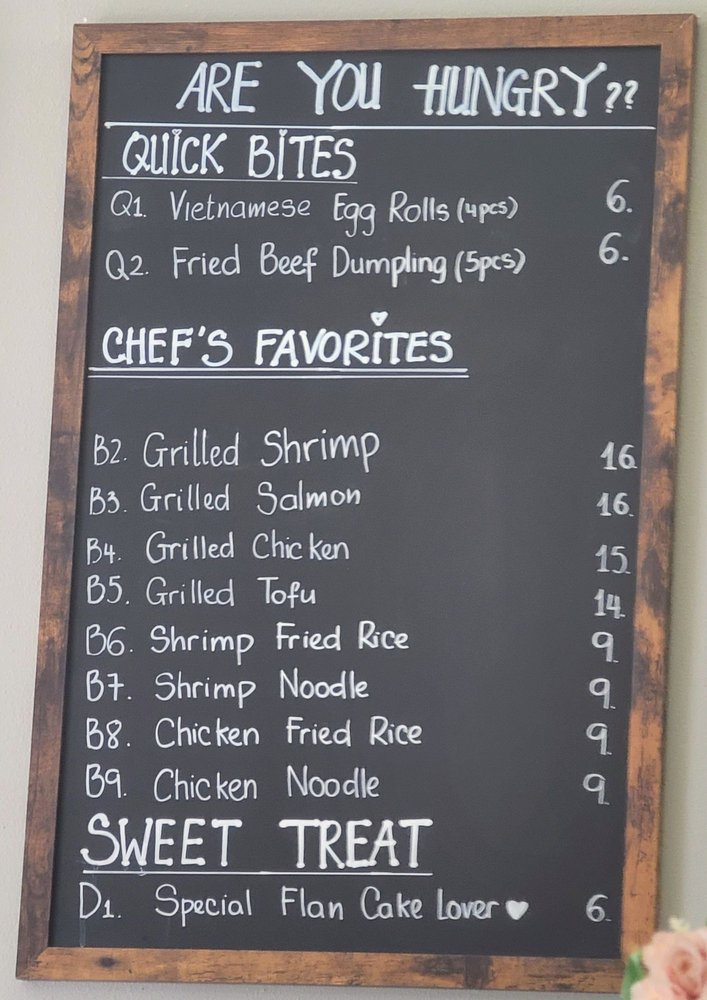 ARE YOU HUNGRY??
QUICK BITES
Q1. Vietnamese Egg Rolls (4pcs) 6.
Q2. Fried Beef Dumpling (5pcs) 6.
CHEF'S FAVORITES
B2. Grilled Shrimp 16.
B3. Grilled Salmon 16.
B4. Grilled Chicken 15.
B5. Grilled Tofu 14.
B6. Shrimp Fried Rice 9.
B7. Shrimp Noodle 9.
B8. Chicken Fried Rice 9.
B9. Chicken Noodle 9.
SWEET TREAT
D1. Special Flan Cake Lover ♥ 6.